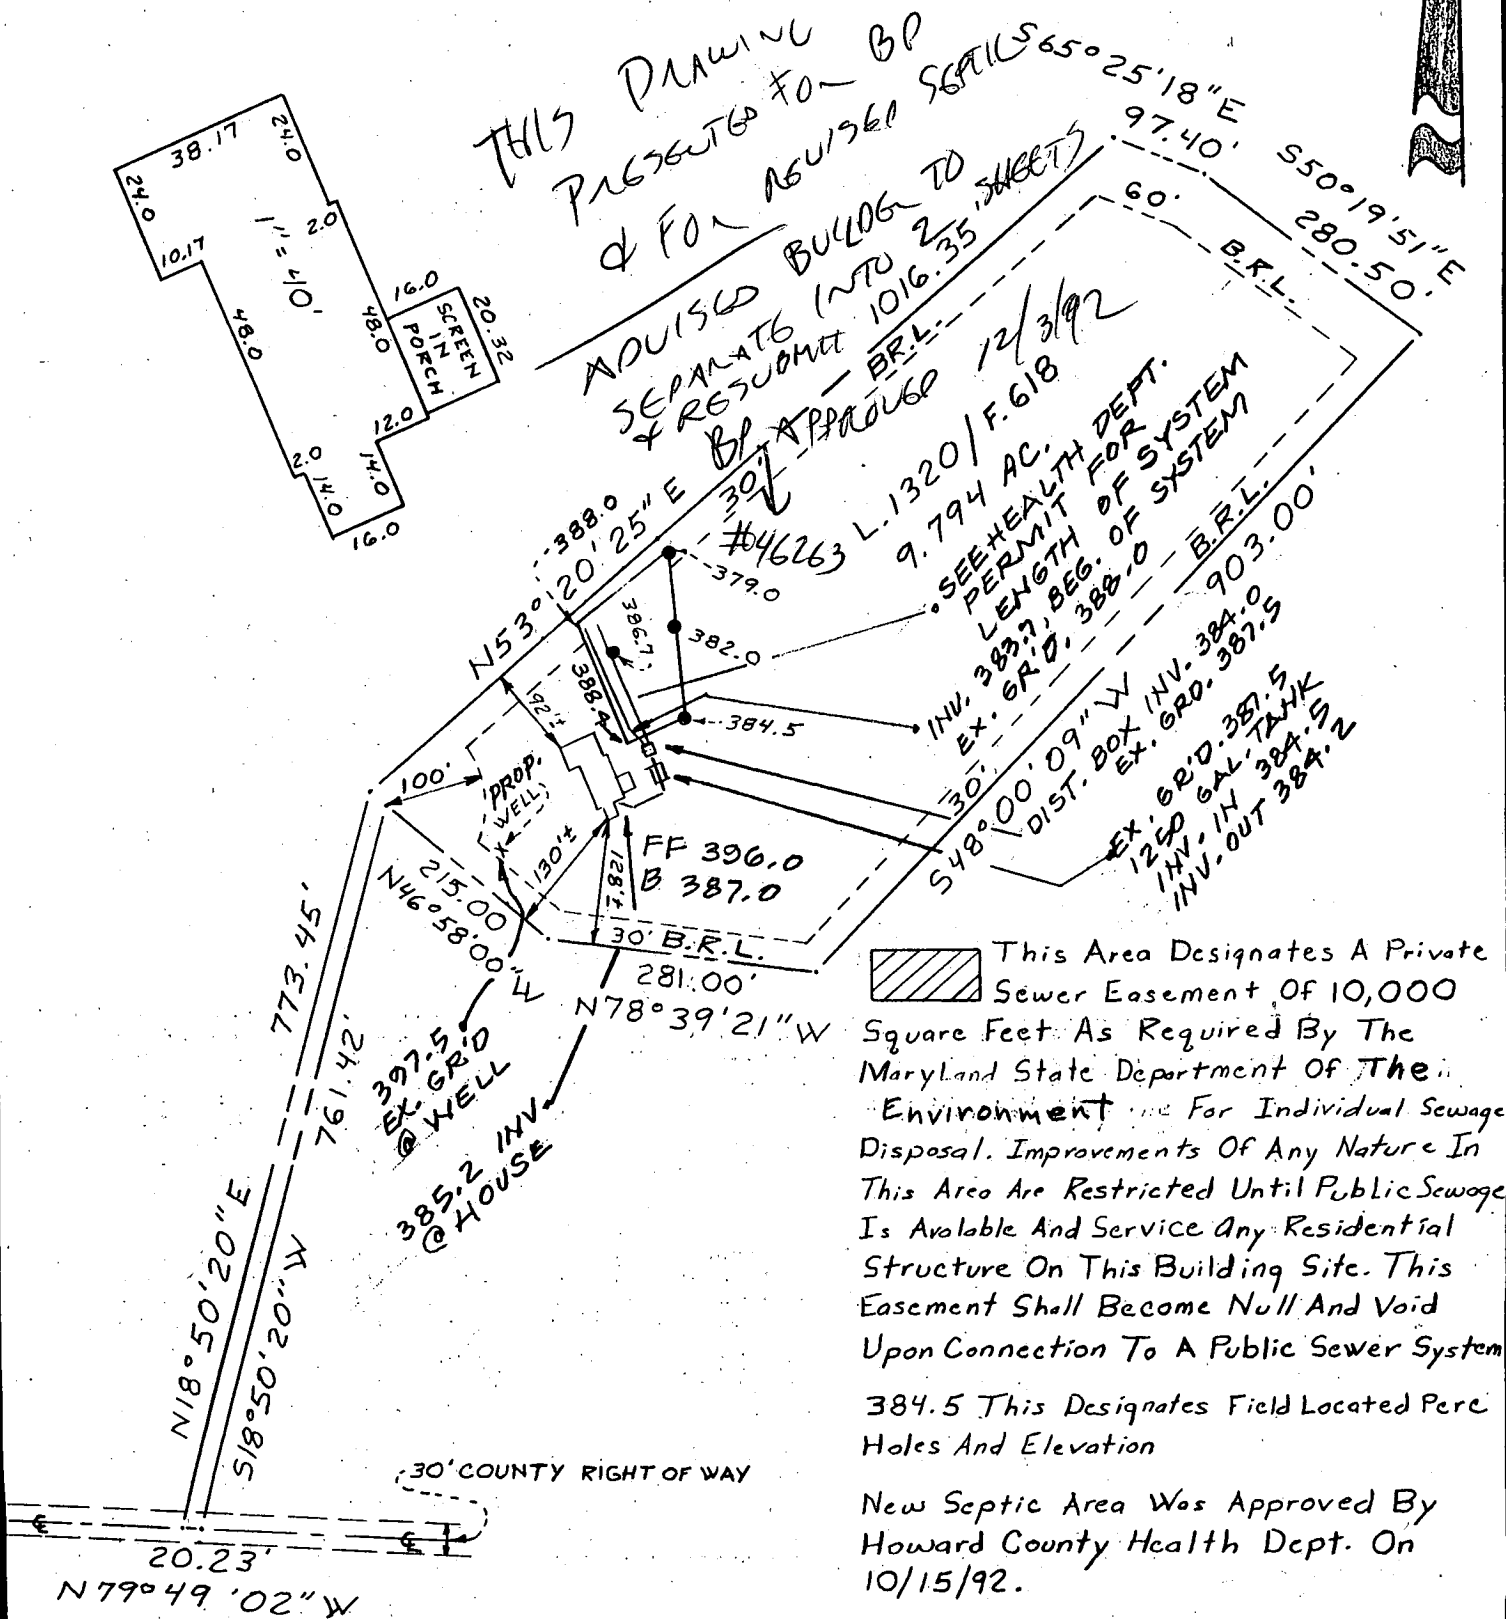 THIS DRAWING
PRESENTED FOR BP
& FOR REVISED SEPTIC
ADVISED BUILDER TO
SEPARATE INTO 2 SHEETS
& RESUBMIT
BP APPROVED 12/3/92
#046263
38.17
24.0
24.0
2.0
10.17
1" = 40'
16.0
20.32
SCREEN
IN
PORCH
48.0
48.0
12.0
2.0
14.0
14.0
16.0
S65°25'18"E
97.40'
S50°19'51"E
280.50'
60.'
B.R.L.
1016.35
B.R.L.
30'
N53°20'25" E
388.0
L.1320/F.618
9.794 AC.
SEE HEALTH DEPT.
PERMIT FOR
LENGTH OF SYSTEM
INV. 383.7, BEG. OF SYSTEM
EX. GR'D. 388.0
B.R.L.
903.00'
S48°00'09" W
30'
DIST. BOX INV. 384.0
EX. GRD. 387.5
EX. GR'D. 387.5
1250 GAL. TANK
INV. IN 384.5
INV. OUT 384.2
379.0
386.7
382.0
388.4
384.5
92'±
100'
PROP.
WELL
130'±
128'±
FF 396.0
B 387.0
215.00
N46°58'00" W
30' B.R.L.
281.00'
N78°39'21" W
773.45'
761.42'
397.5
EX. GR'D
@ WELL
385.2 INV.
@ HOUSE
N18°50'20"E
S18°50'20" W
30' COUNTY RIGHT OF WAY
20.23'
N79°49'02" W
This Area Designates A Private
Sewer Easement Of 10,000
Square Feet As Required By The
Maryland State Department Of The
Environment For Individual Sewage
Disposal. Improvements Of Any Nature In
This Area Are Restricted Until Public Sewage
Is Avalable And Service Any Residential
Structure On This Building Site. This
Easement Shall Become Null And Void
Upon Connection To A Public Sewer System
384.5 This Designates Field Located Perc
Holes And Elevation
New Septic Area Was Approved By
Howard County Health Dept. On
10/15/92.